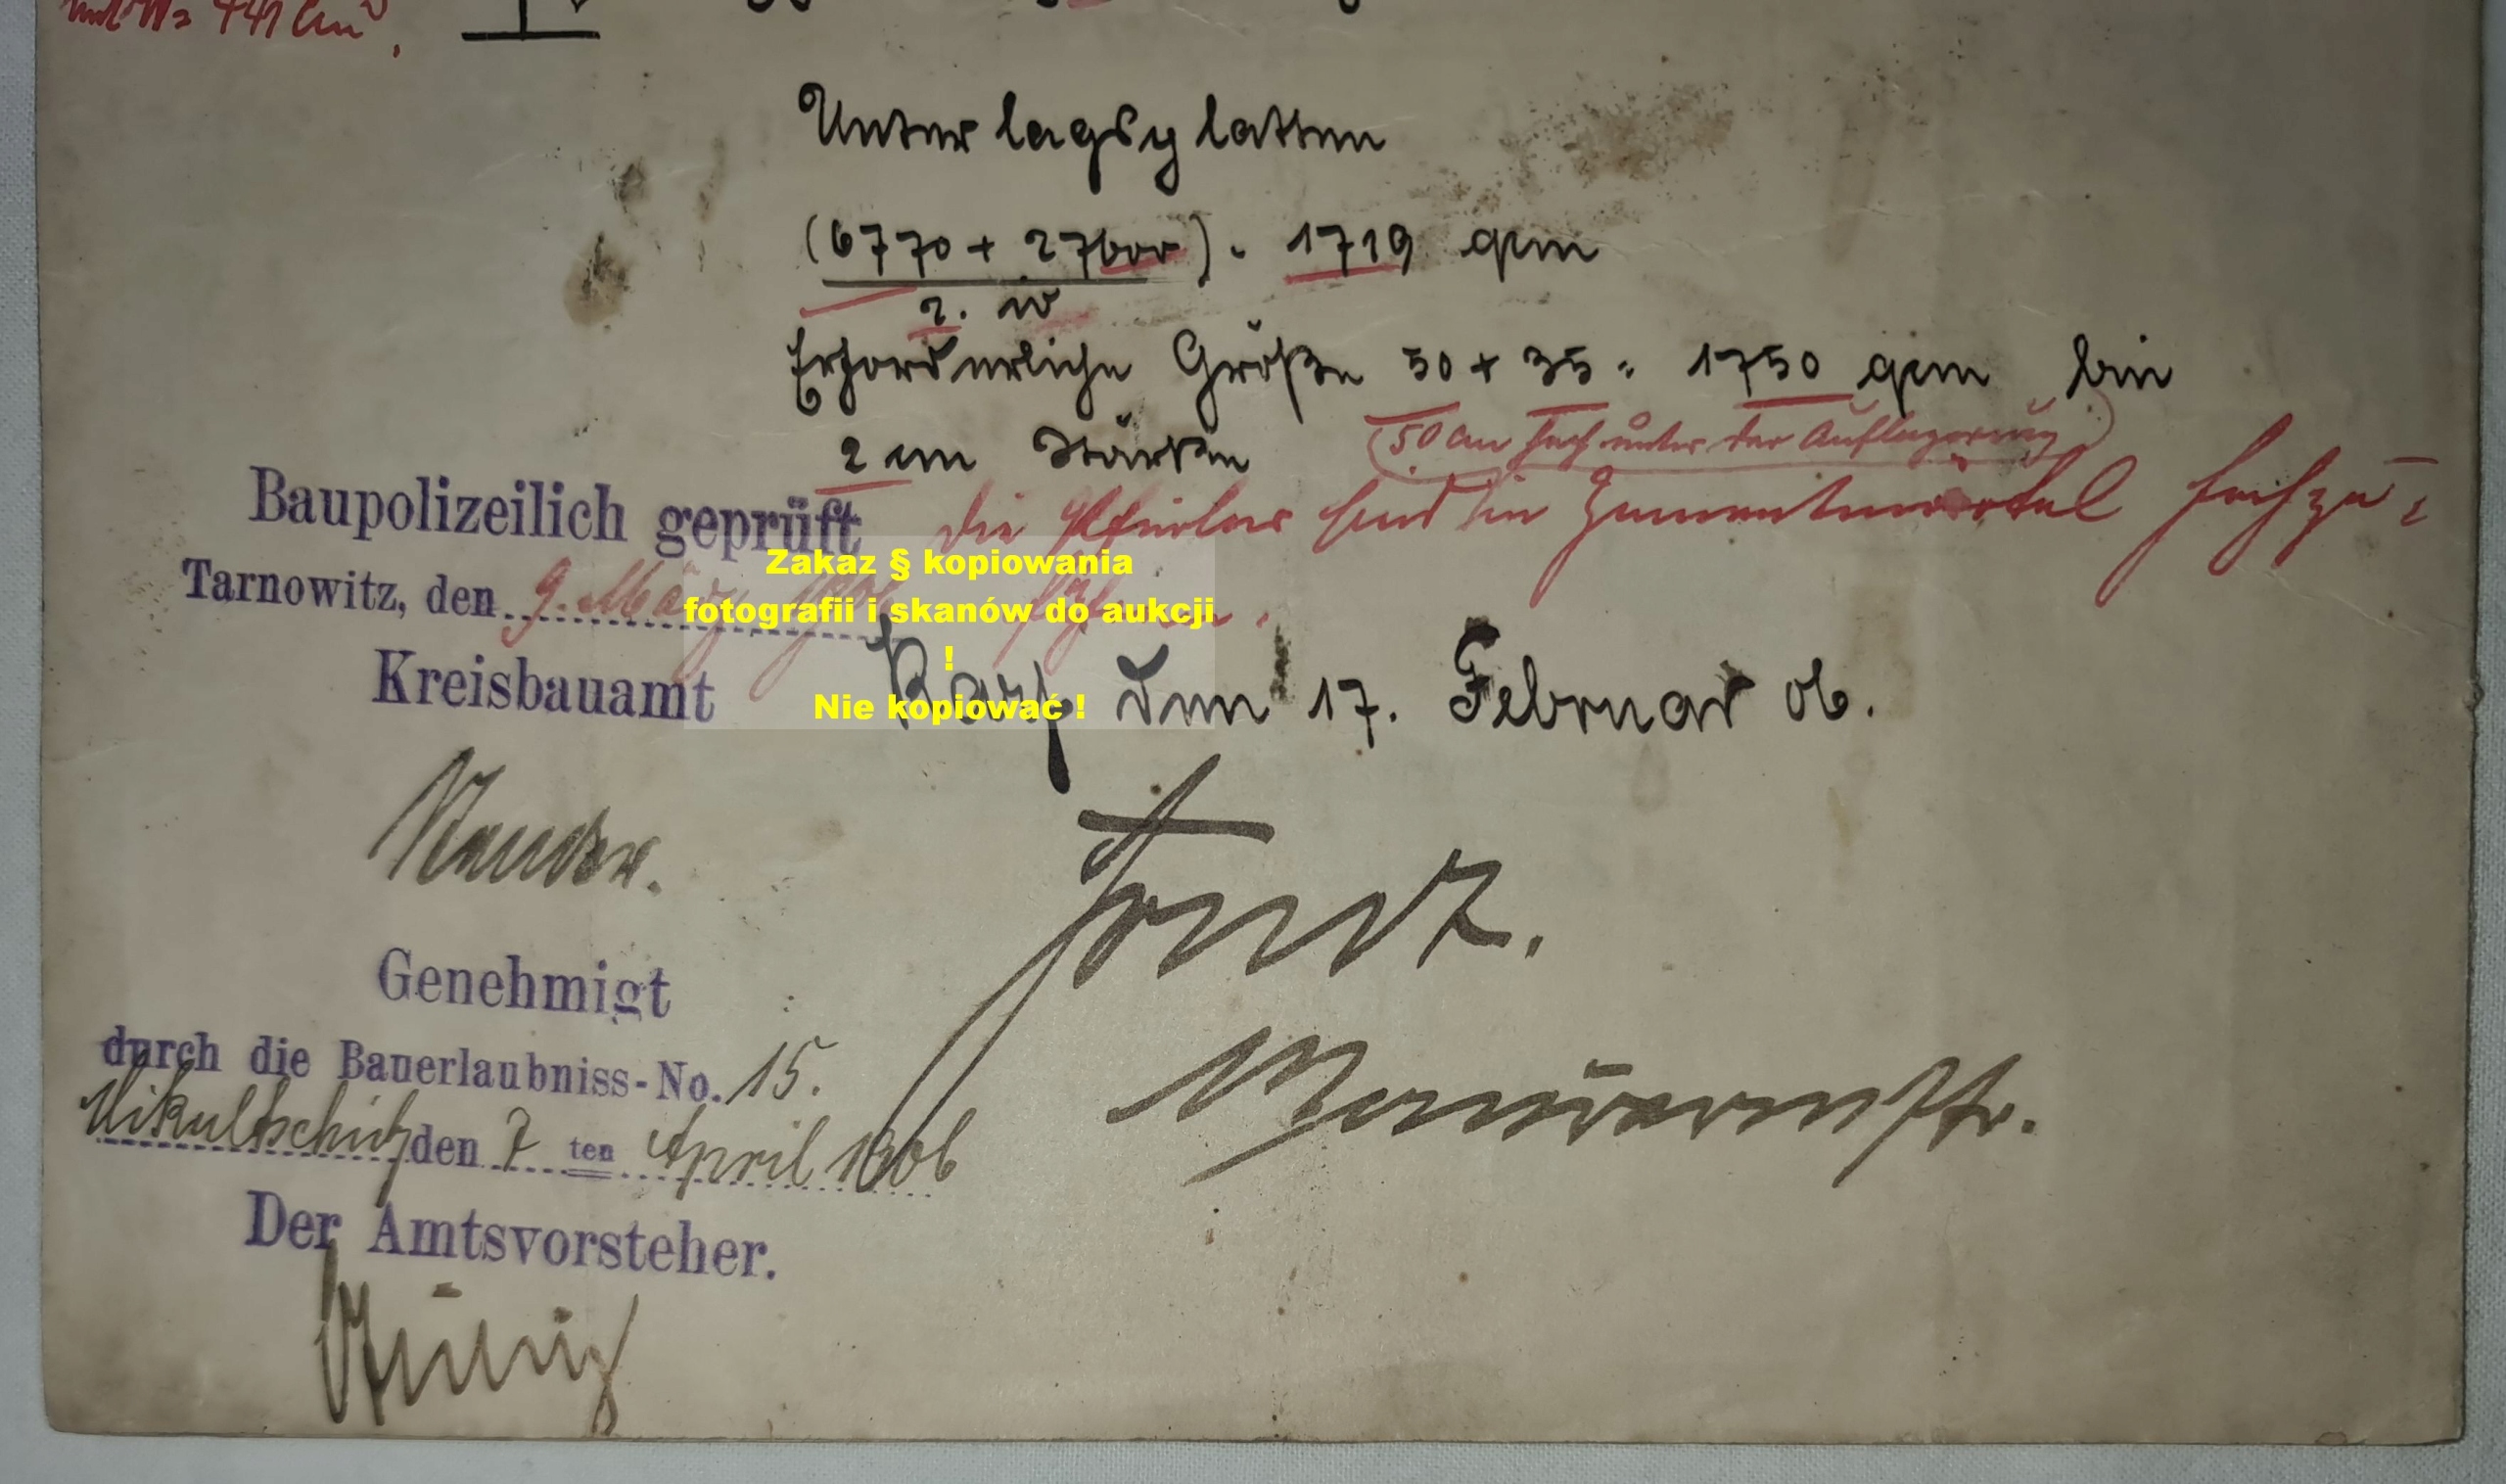 Unterlagsplatten
(6770 + 27600) = 1719 qcm
2. 10
Erforderliche Größe 50 + 35 = 1750 qcm bei
2 cm Stärke
(50 cm hoch unter der Auflagerung)
Die Pfeiler sind in Zementmörtel hochzu=
Baupolizeilich geprüft
Tarnowitz, den 9. März
Zakaz § kopiowania
fotografii i skanów do aukcji
!
Nie kopiować !
Kreisbauamt
Karf den 17. Februar 06.
Genehmigt
durch die Bauerlaubniss-No. 15.
Mikultschütz den 7 ten April 1906
Maurermstr.
Der Amtsvorsteher.